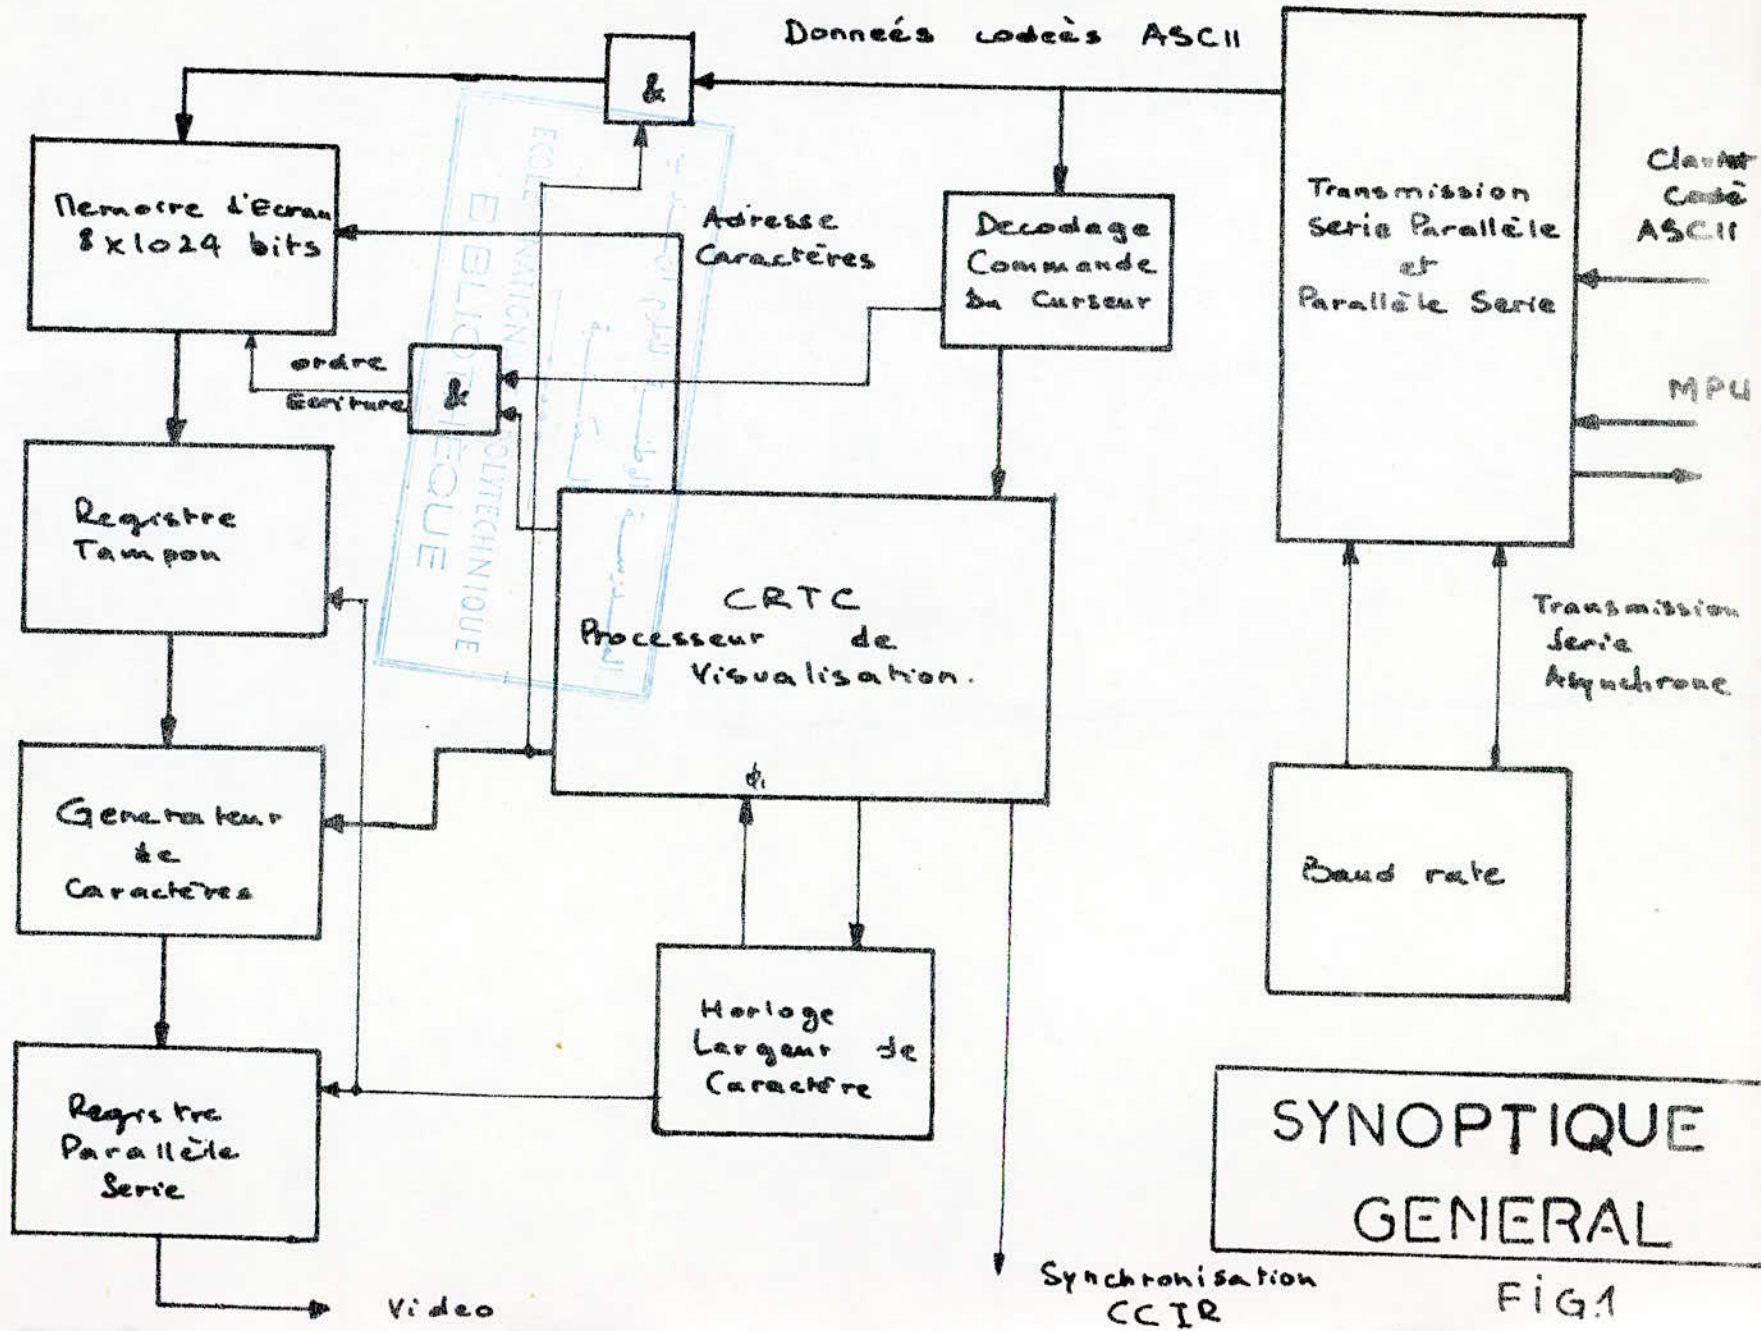 Donneés codeès ASCII
&
Memoire d'Ecran
8x1024 bits
Adresse
Caractères
Decodage
Commande
Du Curseur
Transmission
Serie Parallèle
et
Parallèle Serie
Clavier
Codè
ASCII
MPU
ordre
Ecriture
&
ECOLE NATIONALE POLYTECHNIQUE
BIBLIOTHEQUE
Registre
Tampon
CRTC
Processeur de
Visualisation.
Φ1
Transmission
Serie
Asynchrone
Generateur
de
Caractères
Baud rate
Horloge
Largeur de
Caractère
Registre
Parallèle
Serie
Video
Synchronisation
CCIR
SYNOPTIQUE
GENERAL
FiG.1